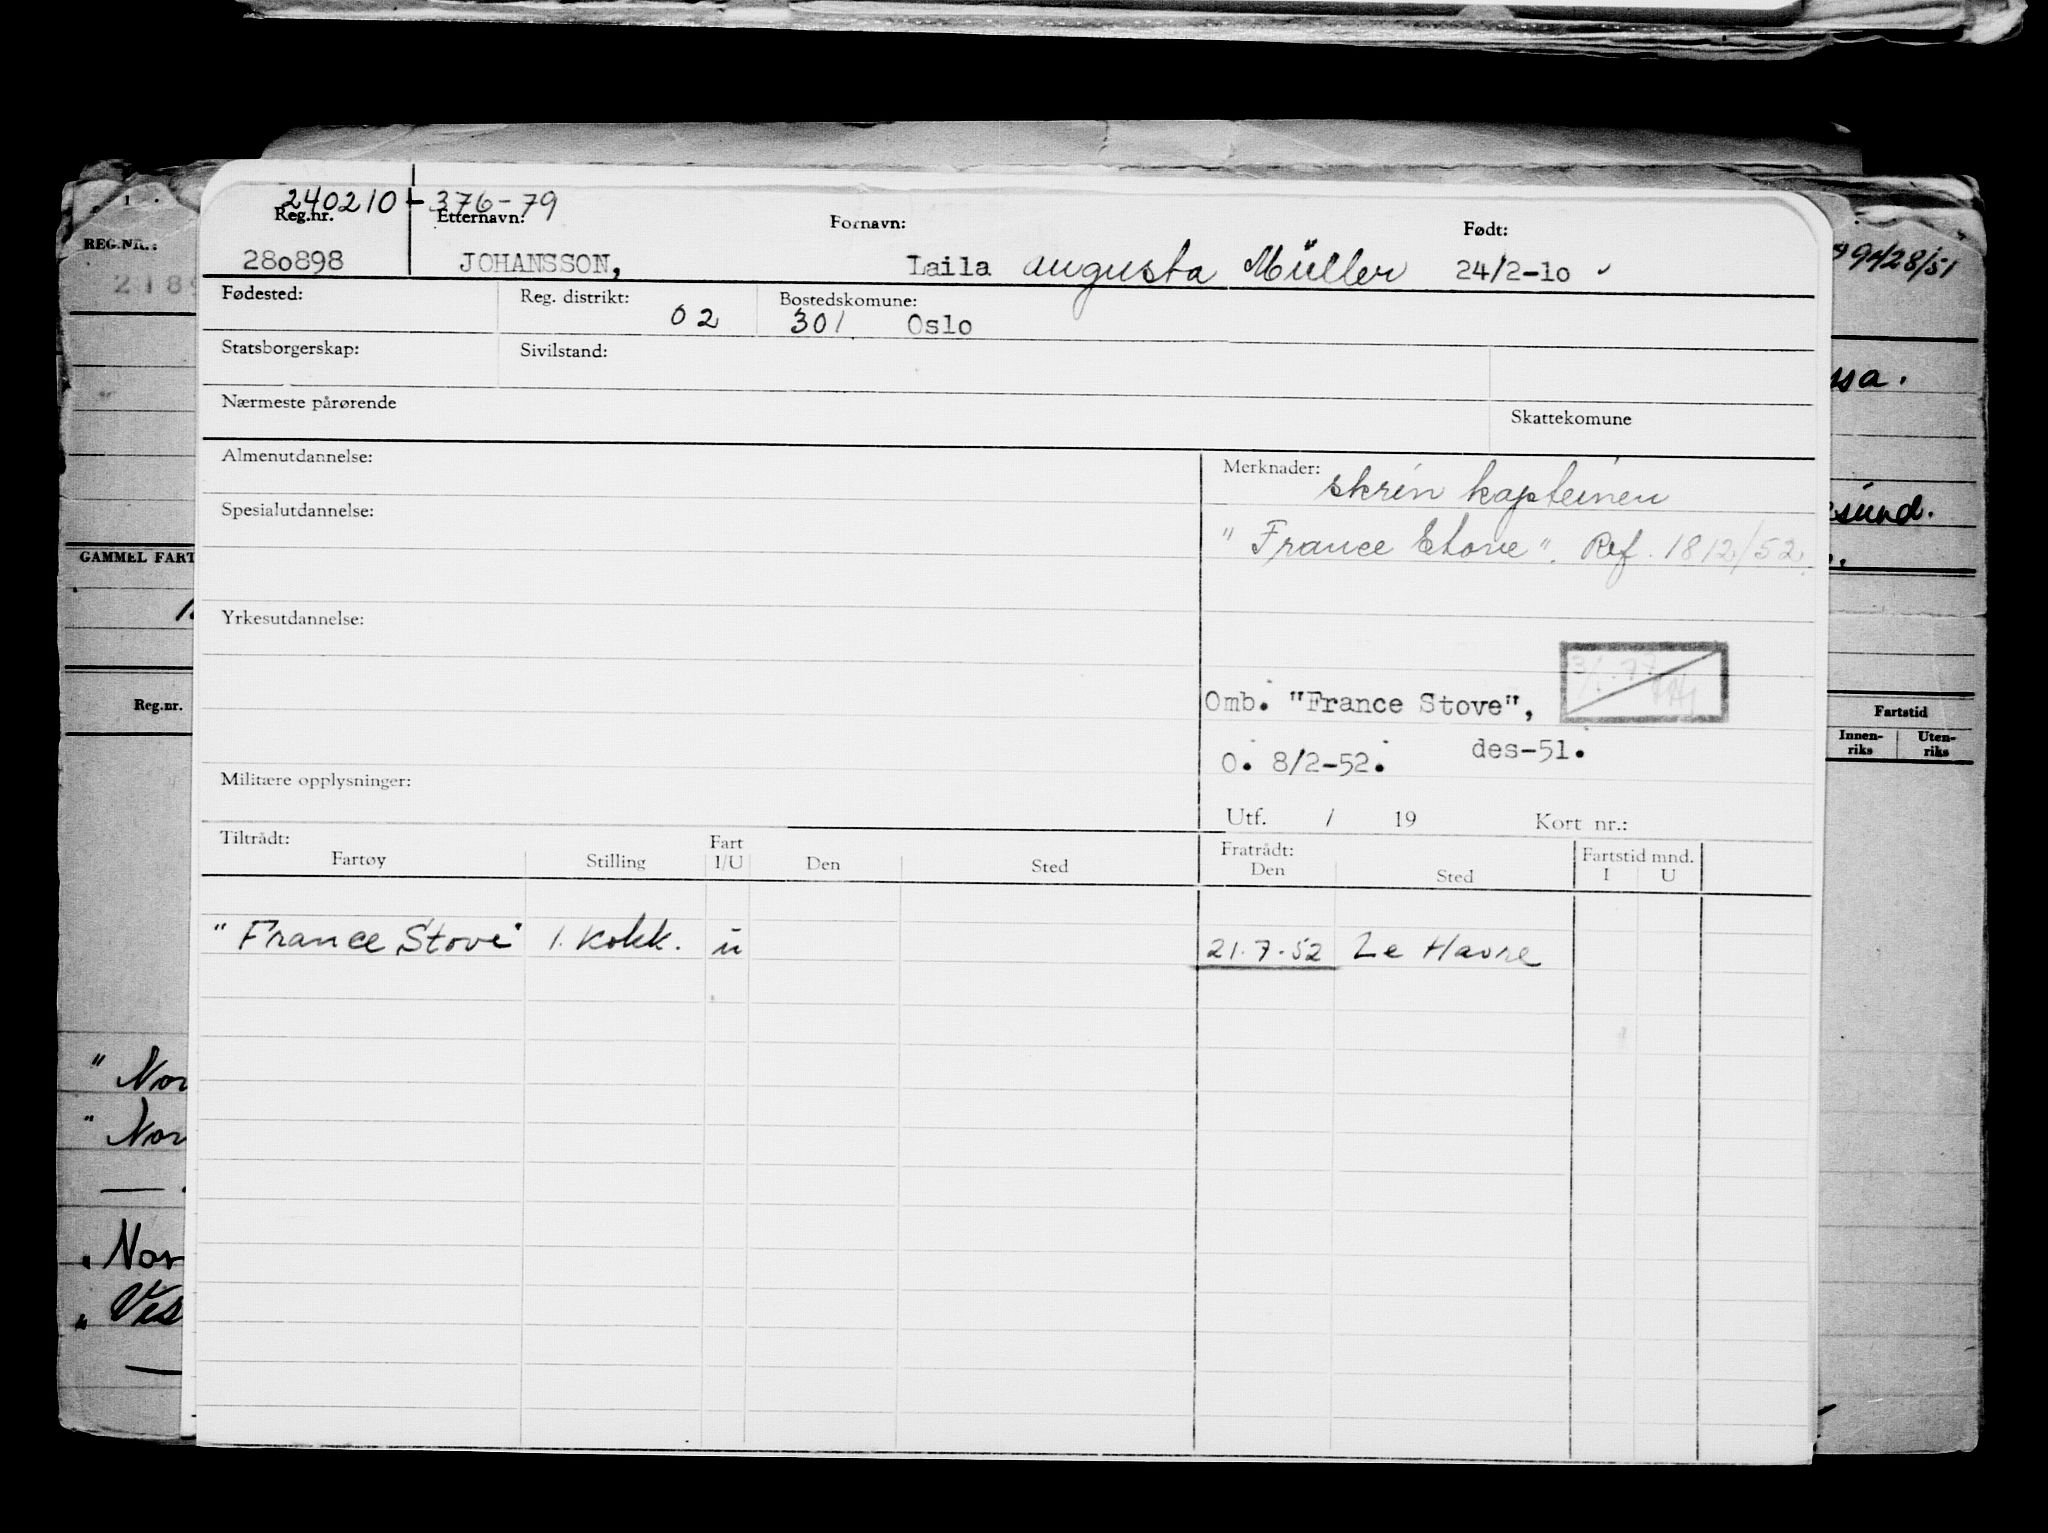 240210-376-79
Reg.nr. Etternavn: Fornavn: Født:
280898 JOHANSSON, Laila Augusta Müller 24/2-10
Fødested: Reg. distrikt: 02 Bostedskomune: 301 Oslo
Statsborgerskap: Sivilstand:
Nærmeste pårørende Skattekomune
Almenutdannelse: Merknader: skrin kapteinen
Spesialutdannelse: "France Stove". Ref. 1812/52.
Yrkesutdannelse:
Omb. "France Stove",
des-51.
O. 8/2-52.
Militære opplysninger:
Utf. / 19 Kort nr.:
Tiltrådt: Fratrådt: Fartstid mnd.
Fartøy Stilling Fart I/U Den Sted Den Sted I U
"France Stove" 1. kokk. u 21.7.52 Le Havre
REG.NR.:
GAMMEL FART
Reg.nr.
"Nor
"Nor
"Nor
"Ves
9428/51
ssa.
esund.
Fartstid
Innen-
riks
Uten-
riks